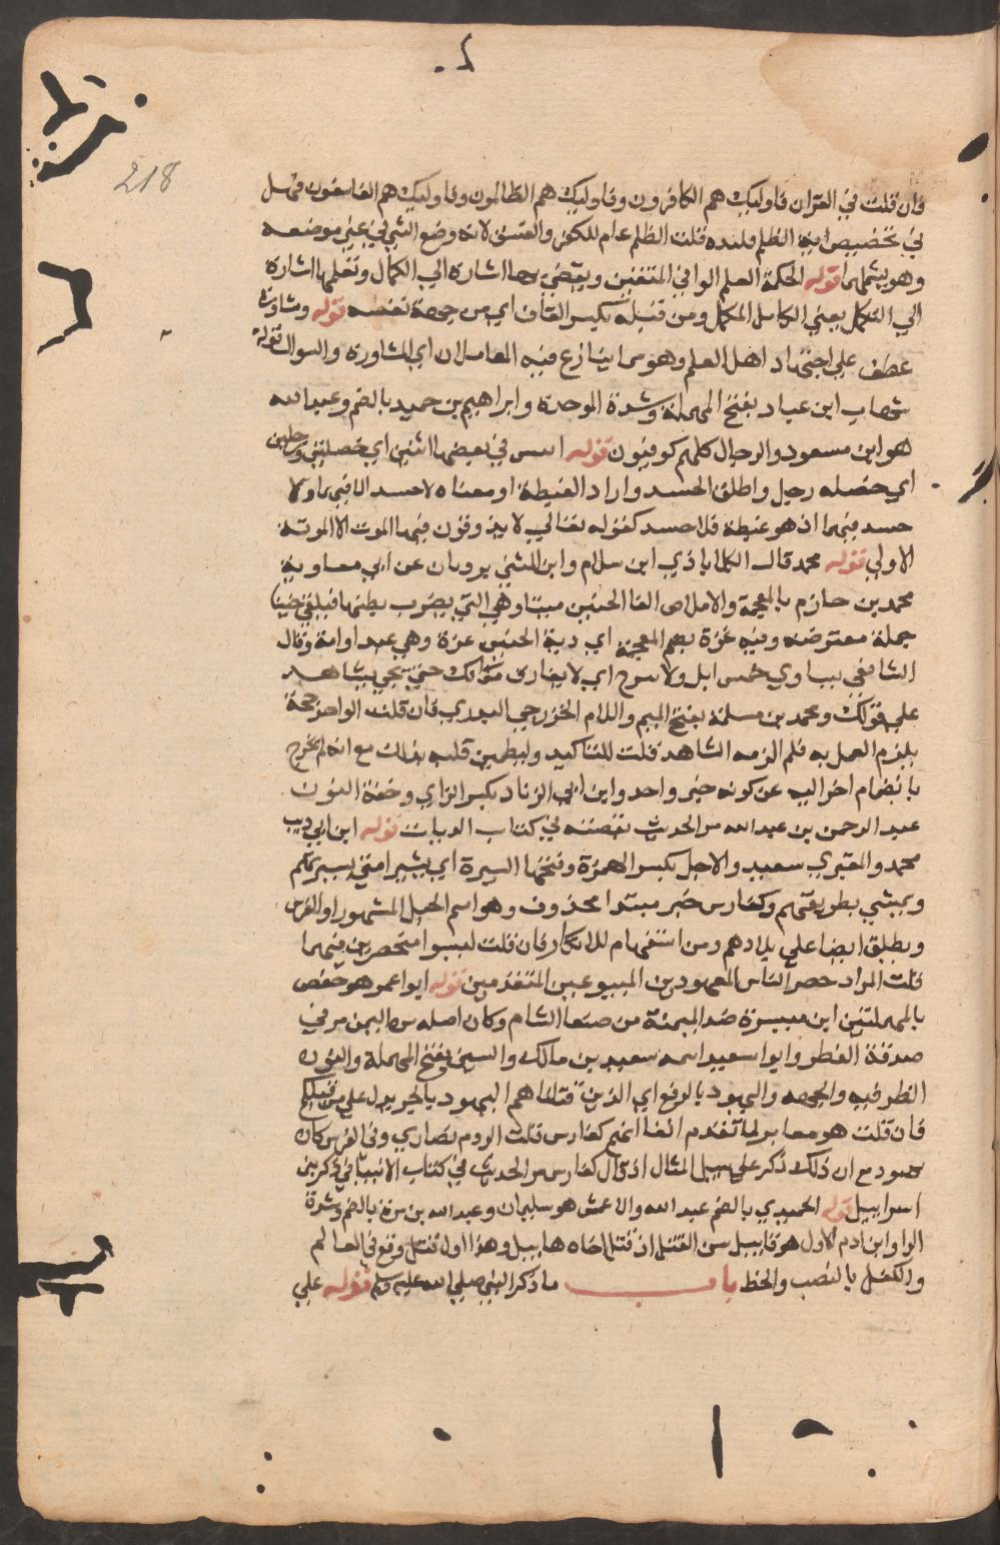 218
فان قلت في القران فاوليك هم الكافرون وفاوليك هم الظالمون وفاوليك هم الفاسقون فهل
في تخصيص اية الظلم فلنده قلت الظلم عام للكفر والفسق لانه وضع الشي في غير موضعه
وهو يشملهما قوله الحكمة العلم الوافي المتقن ويقضي بها اشارة الي الكمال وتعلمها اشارة
الي التكميل يعني الكامل المكمل ومن قبله بكسر القاف اي من جهة نفسه قوله ومشاورة
عطف علي اجتهاد اهل العلم وهو مما يتنازع فيه العاملان اي المشاورة والسوال قوله
شهاب ابن عباد بفتح المهملة وشدة الموحدة وابراهيم بن حميد بالضم وعبد الله
هو ابن مسعود والرجال كلهم كوفيون قوله الا في بعضها اثنين اي خصلتين رجلين
اي خصله رجل واطلق الحسد واراد الغبطة او معناه لا حسد الا فيهما ولا
حسد فيهما اذ هو غبطة فلا حسد كقوله تعالي لا يذوقون فيها الموت الا الموتة
الاولي قوله محمد قال الكلاباذي ابن سلام وابن المثني يرويان عن ابي معاوية
محمد بن حازم بالمعجمة والاملاص القا الجنين ميتا وهي التي يضرب بطنها فيلقي جنينا
جملة معترضه وفيه غرة بضم المعجمة اي دية الجنين غرة وهي عبد او امة وقال
الشافعي يساوي خمس ابل ولا تبرح اي لا تفارق مكانك حتي تجي بشاهد
علي قولك ومحمد بن مسلمة بفتح الميم واللام الخزرجي البدري فان قلت الواحد حجة
يلزم العمل به فلم الزمه الشاهد قلت للتاكيد وليطمين قلبه بذلك مع انه لم يخرج
بانضمام اخر اليه عن كونه خبر واحد وابن ابي الزناد بكسر الزاي وخفة النون
عبد الرحمن بن عبد الله مر الحديث بقصته في كتاب الديات قوله ابن ابي ذيب
محمد والمقبري سعيد والاخذ بكسر الهمزة وفتحها السيرة اي يسير امتي بسيرتهم
ويمشي بطريقتهم وكفارس خبر مبتدا محذوف وهو اسم الجيل المشهور او الفرس
ويطلق ايضا علي بلادهم ومن استفهام للانكار فان قلت ليسوا منحصرين فيهما
قلت المراد حصر الناس المعهودين المتبوعين المتقدمين قوله ابو عمر هو حفص
بالمهملتين ابن ميسرة ضد الميمنة من صنعا الشام وكان اصله من اليمن مر في
صدقة الفطر وابو سعيد اسمه سعد بن مالك والسنن بفتح المهملة والنون
الطريقة والجهة واليهود بالرفع اي الذين قبلنا هم اليهود بالجر بدل علي من قبلكم
فان قلت هو مغاير لما تقدم انفا انهم كفارس قلت الروم نصاري وفي الفرس كان
يهود مع ان ذلك ذكر علي سبيل المثال اذ قال كفارس مر الحديث في كتاب الانبيا في ذكر بني
اسراييل قوله الحميدي بالضم عبد الله والاعمش هو سليمان وعبد الله بن مرة بالضم وشدة
الرا وابن ادم الاول هو قابيل سن القتل اذ قتل اخاه هابيل وهذا اول قتل وقع في العالم
والكفل بالنصب والحظ باب ما ذكر النبي صلي الله عليه وسلم قوله علي